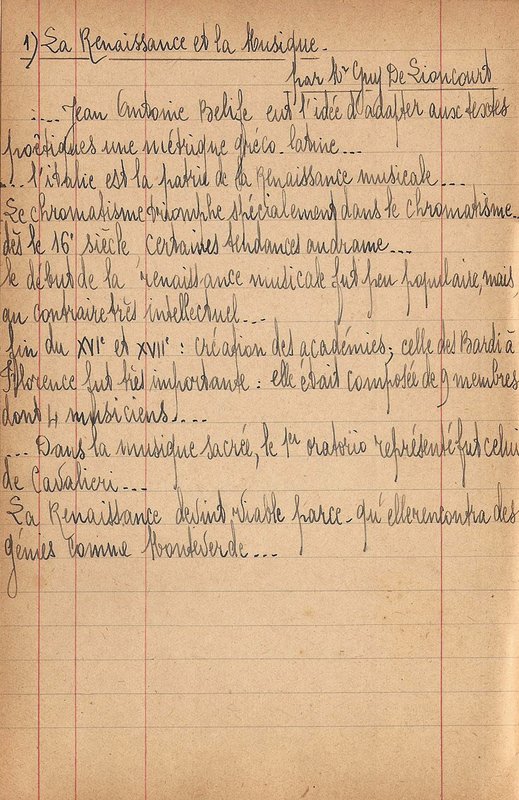 1) La Renaissance et la Musique.
par Mr Guy De Lioncourt
.... Jean Antoine Belife eut l'idée d'adapter aux textes
poëtiques une métrique gréco-latine...
... l'italie est la patrie de la Renaissance musicale...
Le chromatisme triomphe spécialement dans le chromatisme...
dès le 16e siècle, certaines tendances au drame...
le début de la renaissance musicale fut peu populaire, mais,
au contraire très intellectuel...
fin du XVIe et XVIIe : création des académies; celle des Bardi à
Florence fut très importante : elle était composée de 9 membres
dont 4 musiciens....
... Dans la musique sacrée, le 1er oratorio représenté fut celui
de Cavalieri...
La Renaissance devint viable parce-qu'elle rencontra des
génies comme Montéverde...